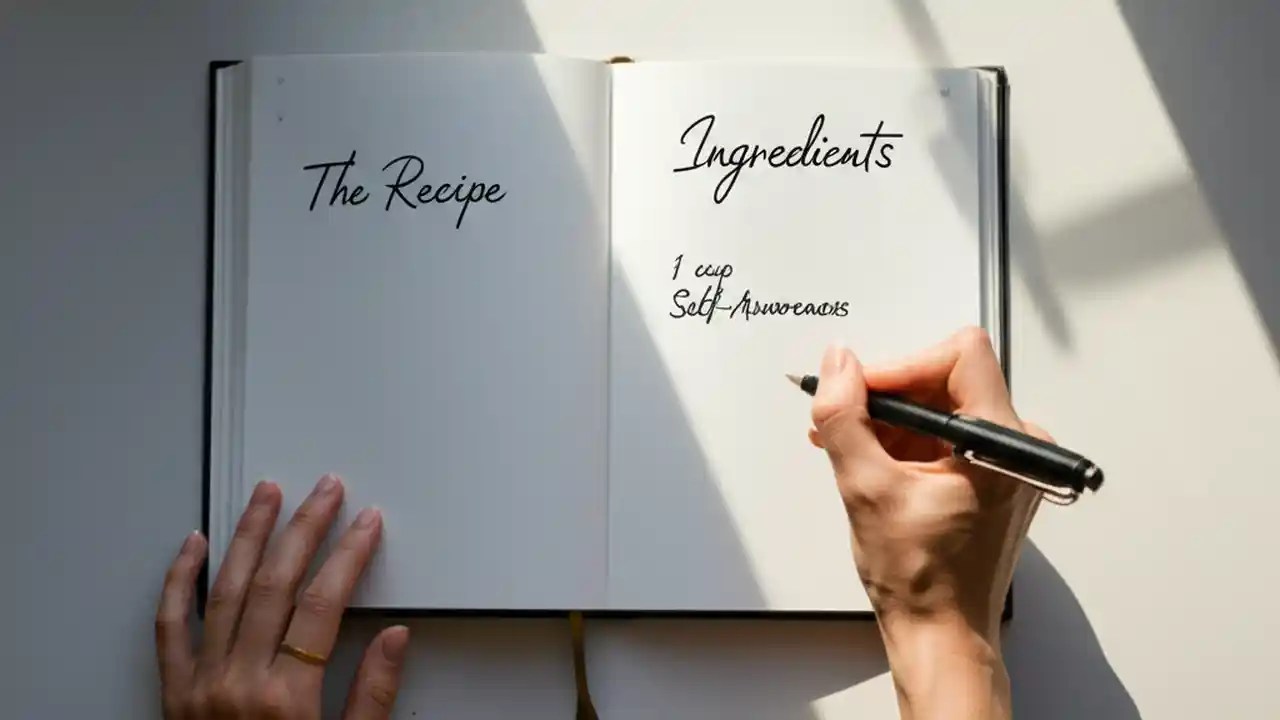 The Recipe
Ingredients
1 cup
Self-Awareness